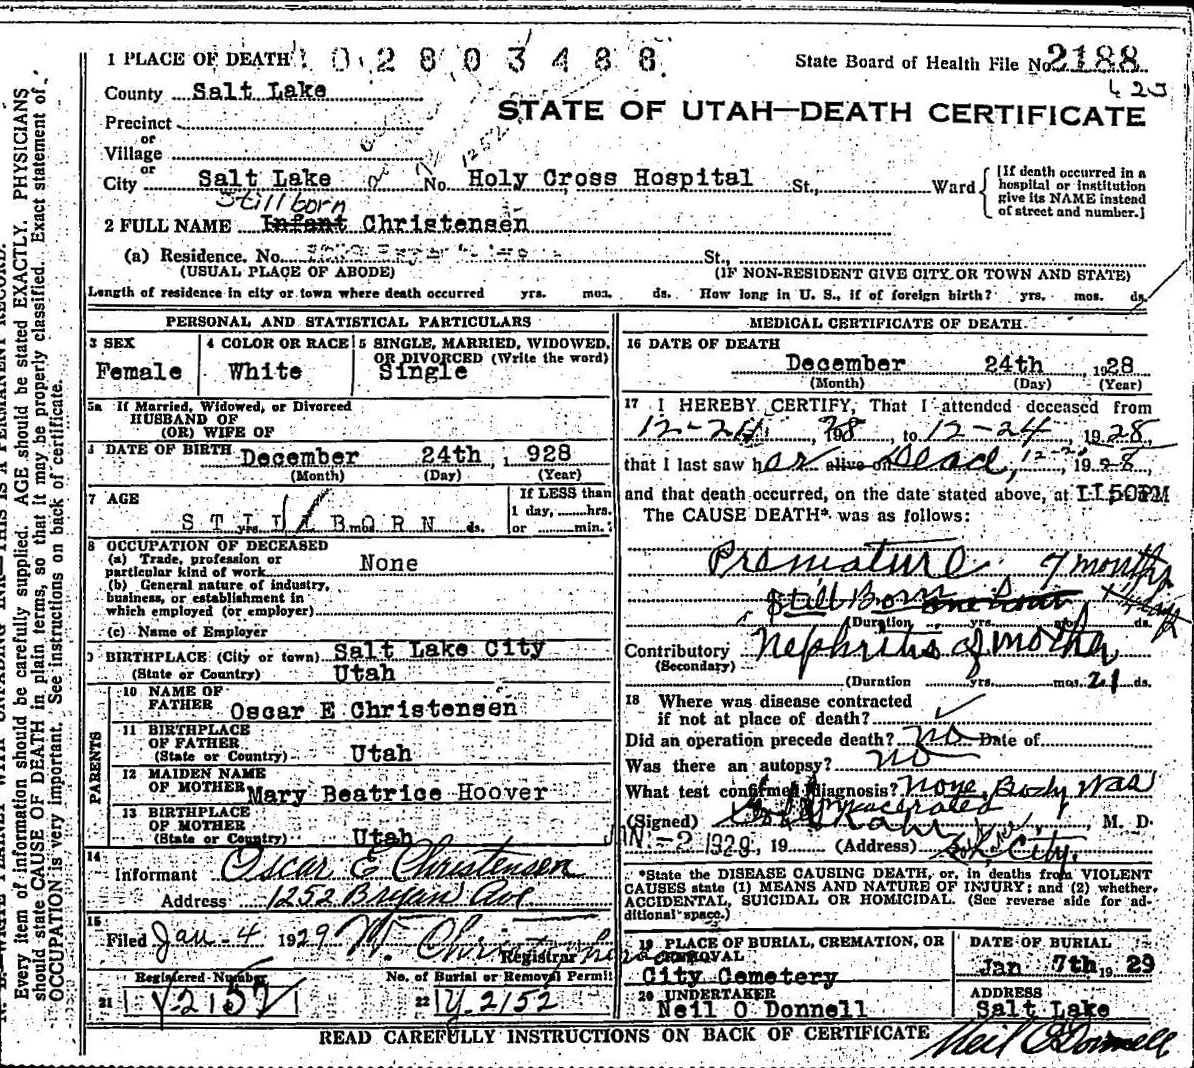 1 PLACE OF DEATH
0 2 8 0 3 4 8 8
State Board of Health File No. 2188
County Salt Lake
423
STATE OF UTAH—DEATH CERTIFICATE
Precinct
or
Village
or
1252
City Salt Lake No. Holy Cross Hospital St., Ward
[If death occurred in a
hospital or institution
give its NAME instead
of street and number.]
Stillborn
2 FULL NAME Infant Christensen
(a) Residence. No. St.,
(USUAL PLACE OF ABODE) (IF NON-RESIDENT GIVE CITY OR TOWN AND STATE)
Length of residence in city or town where death occurred yrs. mos. ds. How long in U. S., if of foreign birth? yrs. mos. ds.
PERSONAL AND STATISTICAL PARTICULARS
3 SEX
Female
4 COLOR OR RACE
White
5 SINGLE, MARRIED, WIDOWED,
OR DIVORCED (Write the word)
Single
5a If Married, Widowed, or Divorced
HUSBAND OF
(OR) WIFE OF
DATE OF BIRTH December 24th, 1928
(Month) (Day) (Year)
7 AGE
STILLBORN
yrs. mos. ds.
If LESS than
1 day, hrs.
or min.?
8 OCCUPATION OF DECEASED
(a) Trade, profession or
particular kind of work None
(b) General nature of industry,
business, or establishment in
which employed (or employer)
(c) Name of Employer
9 BIRTHPLACE (City or town) Salt Lake City
(State or Country) Utah
PARENTS
10 NAME OF
FATHER Oscar E Christensen
11 BIRTHPLACE
OF FATHER
(State or Country) Utah
12 MAIDEN NAME
OF MOTHER Mary Beatrice Hoover
13 BIRTHPLACE
OF MOTHER
(State or Country) Utah
14
Informant Oscar E Christensen
Address 1252 Bryan Ave
15
Filed Jan-4 1929 W. Christopherson
Registrar
Registered Number
21 Y2152
No. of Burial or Removal Permit
22 Y.2152
MEDICAL CERTIFICATE OF DEATH
16 DATE OF DEATH
December 24th, 1928
(Month) (Day) (Year)
17 I HEREBY CERTIFY, That I attended deceased from
12-24, 1928, to 12-24, 1928,
that I last saw her alive on Dead, 1928,
and that death occurred, on the date stated above, at 11:50PM
The CAUSE DEATH* was as follows:
Premature 7 months
Still Born one hour
(Duration yrs. mos. ds.
Contributory Nephritis of mother
(Secondary)
(Duration yrs. mos. 21 ds.
18 Where was disease contracted
if not at place of death?
Did an operation precede death? no Date of
Was there an autopsy? no
What test confirmed diagnosis? none, Body was
macerated
(Signed) M. D.
JAN.-2 1929, 19 (Address) S.L. City.
*State the DISEASE CAUSING DEATH, or, in deaths from VIOLENT
CAUSES state (1) MEANS AND NATURE OF INJURY; and (2) whether
ACCIDENTAL, SUICIDAL OR HOMICIDAL. (See reverse side for ad-
ditional space.)
19 PLACE OF BURIAL, CREMATION, OR
REMOVAL
City Cemetery
DATE OF BURIAL
Jan 7th 1929
20 UNDERTAKER
Neil O Donnell
ADDRESS
Salt Lake
READ CAREFULLY INSTRUCTIONS ON BACK OF CERTIFICATE
Neil O'Donnell
N. B.—WRITE PLAINLY WITH UNFADING INK—THIS IS A PERMANENT RECORD.
Every item of information should be carefully supplied. AGE should be stated EXACTLY. PHYSICIANS
should state CAUSE OF DEATH in plain terms, so that it may be properly classified. Exact statement of
OCCUPATION is very important. See instructions on back of certificate.